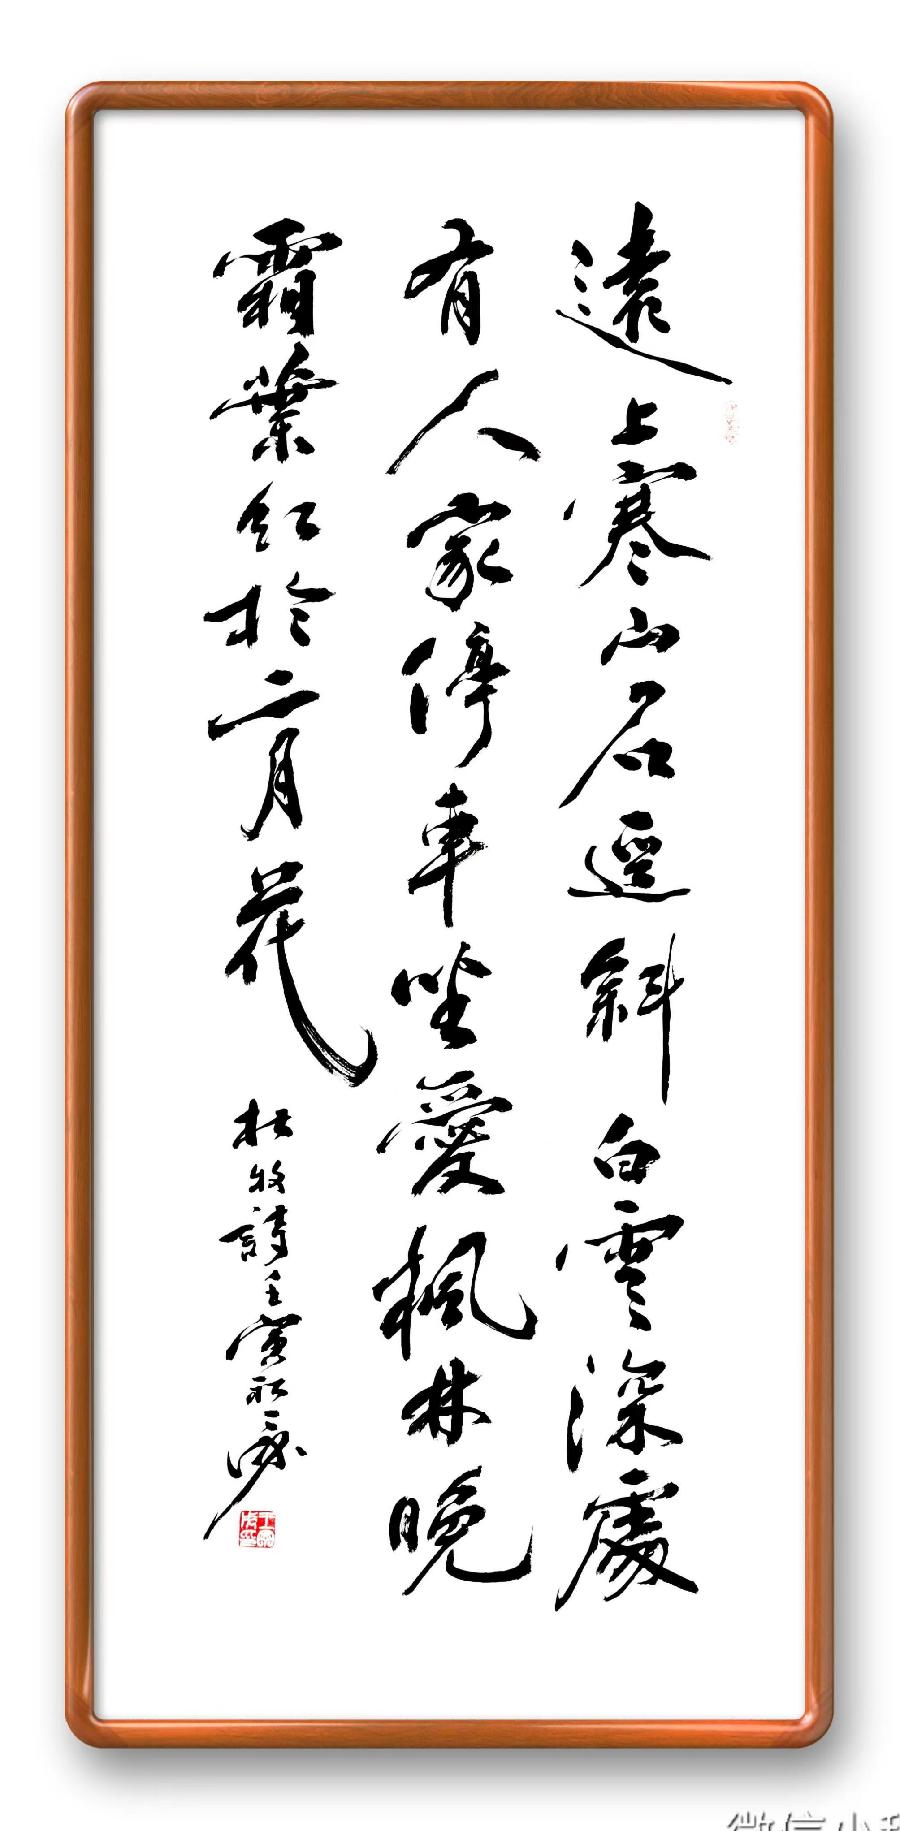 遠上寒山石逕斜白雲深處
有人家停車坐愛楓林晚
霜葉紅於二月花
杜牧詩壬寅秋
微信小